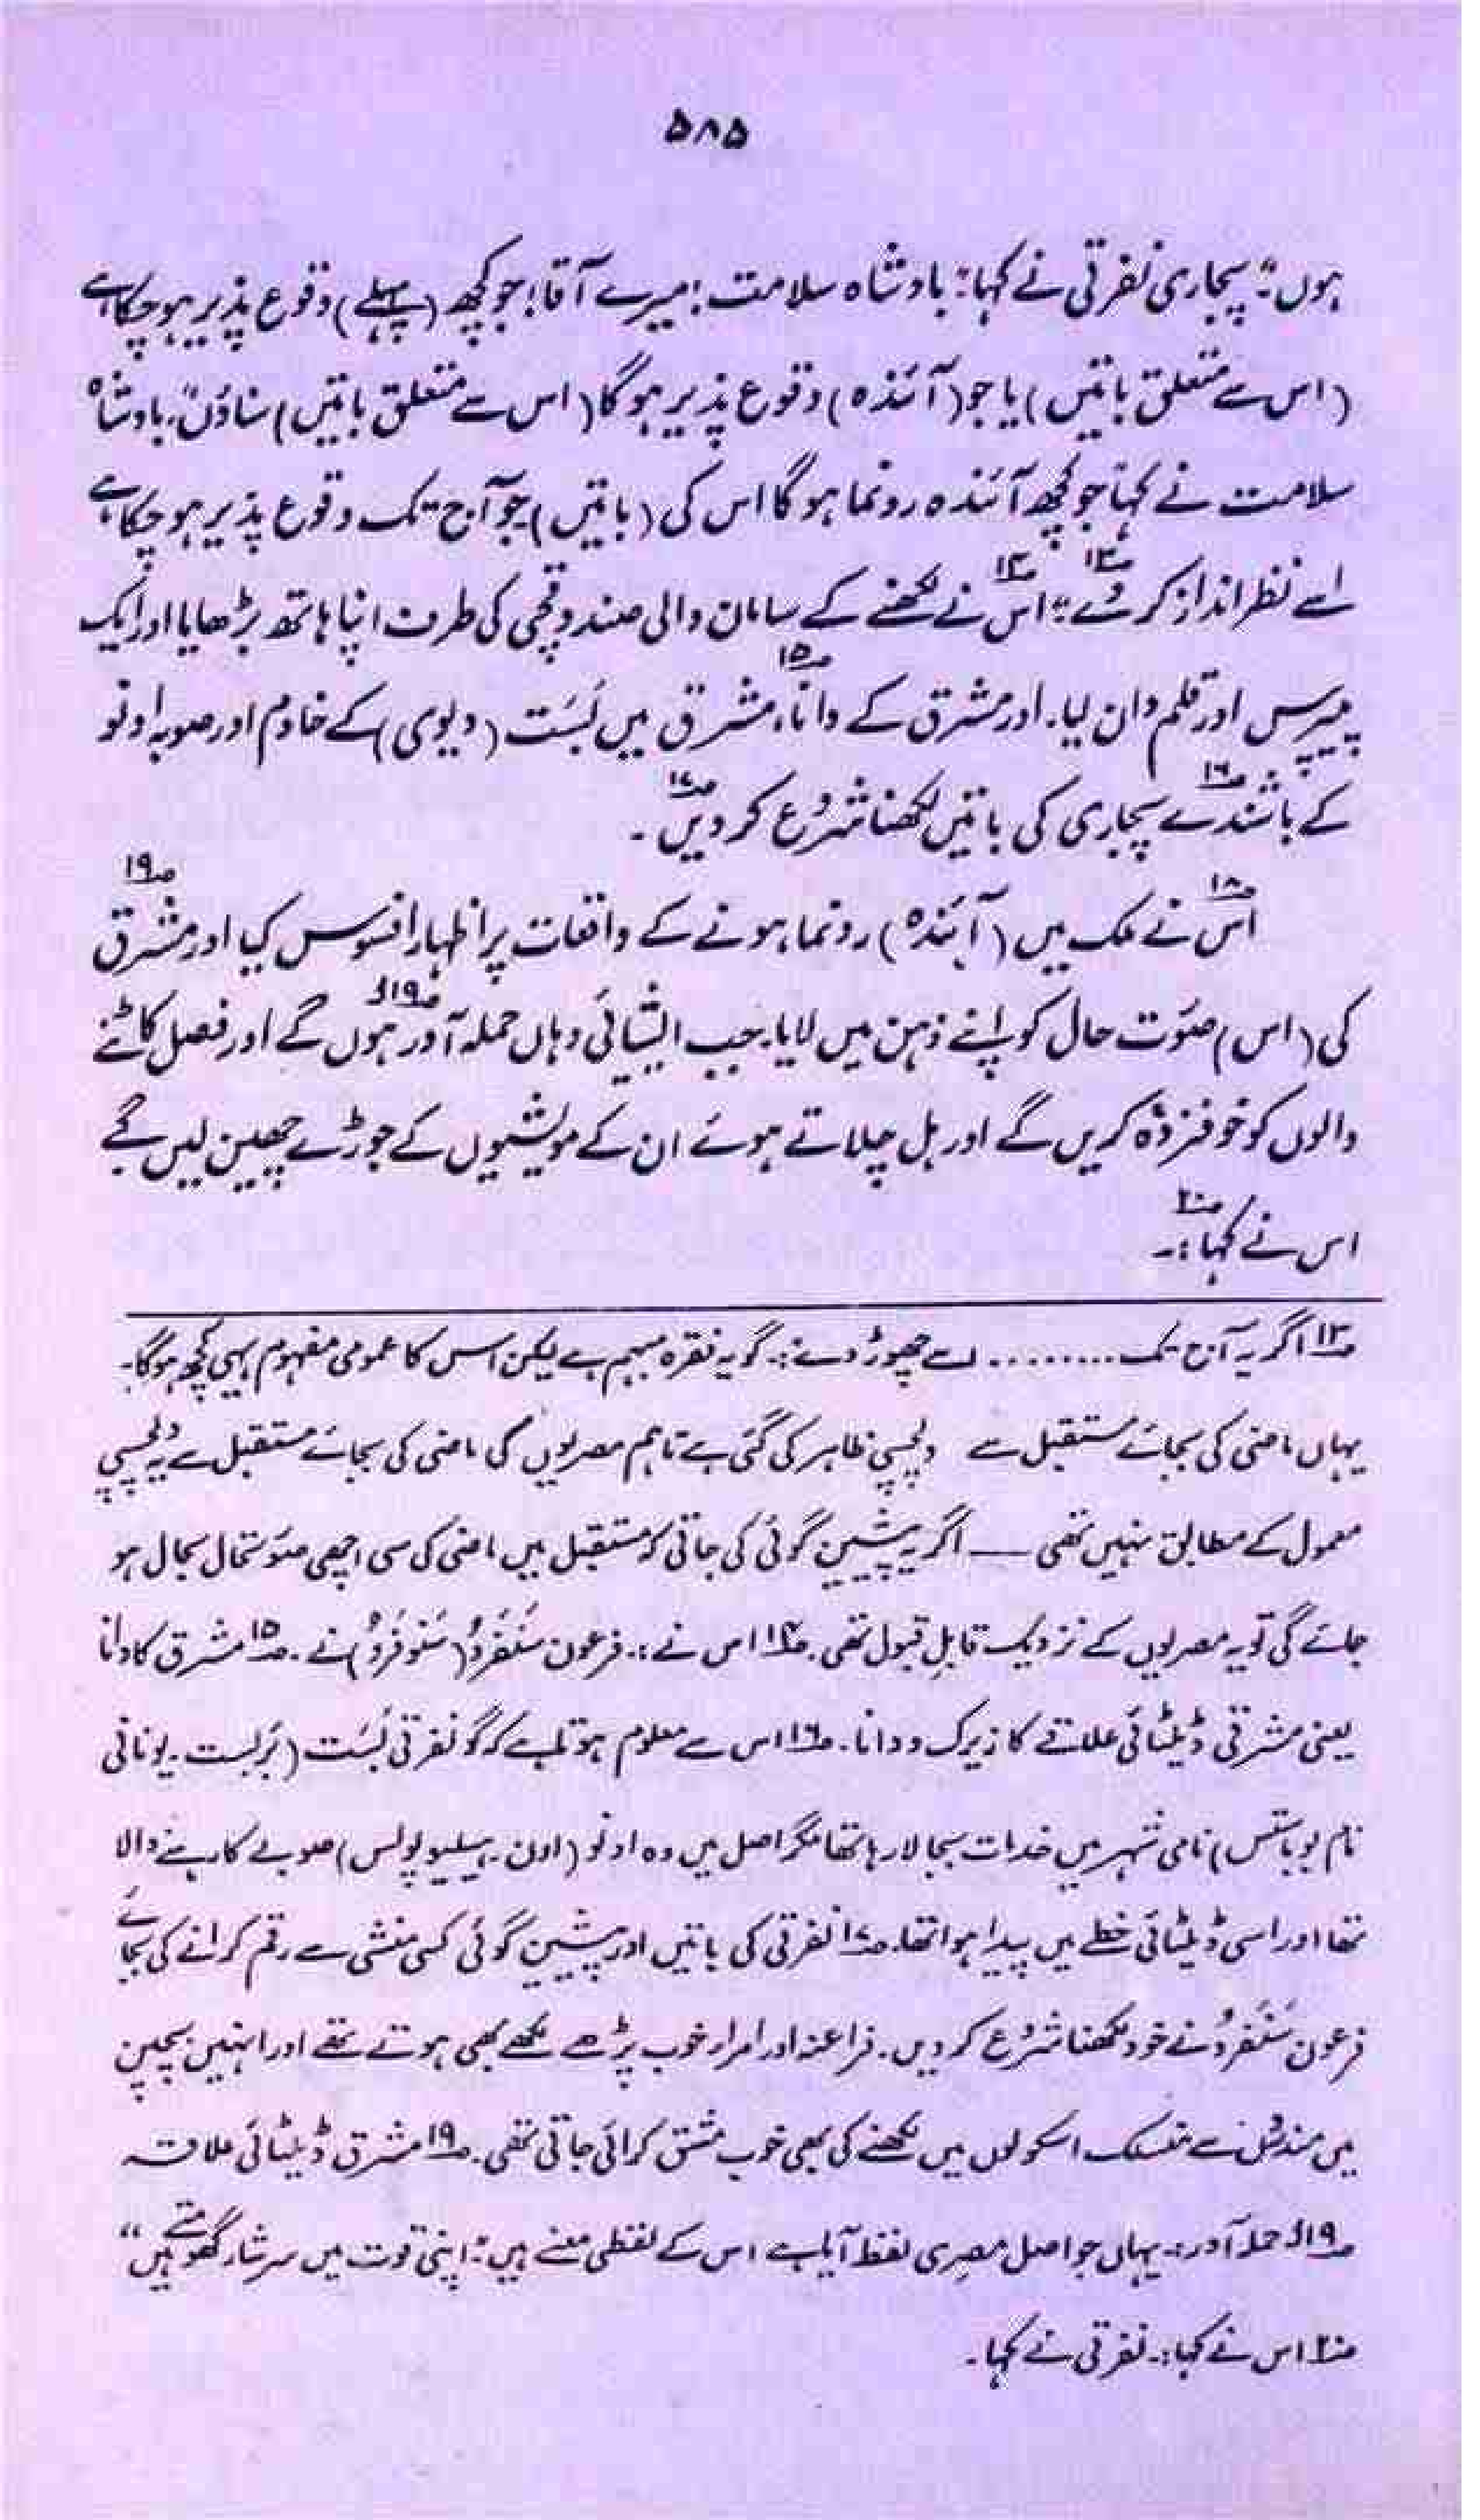 ۵۸۵
ہوں"؛ پجاری نفرتی نے کہا: "بادشاہ سلامت! میرے آقا! جو کچھ (پہلے) وقوع پذیر ہو چکا ہے
(اس سے متعلق باتیں) یا جو (آئندہ) وقوع پذیر ہو گا (اس سے متعلق باتیں) سناؤں"، بادشاہ
سلامت نے کہا "جو کچھ آئندہ رونما ہو گا اس کی (باتیں) جو آج تک وقوع پذیر ہو چکا ہے
اسے نظر انداز کر دے"؛ ۱۳ اس ۱۴ نے لکھنے کے سامان والی صندوقچی کی طرف اپنا ہاتھ بڑھایا اور ایک
پیپرس اور قلم دان لیا۔ اور مشرق کے دانا، ۱۵ مشرق میں بَسَت (دیوی) کے خادم اور صوبہ اونو
کے باشندے ۱۶ پجاری کی باتیں لکھنا شروع کر دیں ۱۷۔
اس ۱۸ نے ملک میں (آئندہ) رونما ہونے کے واقعات پر اظہار افسوس کیا اور مشرق ۱۹
کی (اس) صورت حال کو اپنے ذہن میں لایا۔ جب ایشیائی وہاں حملہ آور ۱۹ ا ہوں گے اور فصل کاٹنے
والوں کو خوفزدہ کریں گے اور ہل چلاتے ہوئے ان کے مویشیوں کے جوڑے چھین لیں گے
اس نے کہا ۲۰:۔
۱۳ اگر یہ آج تک ......... اسے چھوڑ دے:۔ گو یہ فقرہ مبہم ہے لیکن اس کا عمومی مفہوم یہی کچھ ہو گا۔
یہاں ماضی کی بجائے مستقبل سے دلچسپی ظاہر کی گئی ہے تاہم مصریوں کی ماضی کی بجائے مستقبل سے یہ دلچسپی
معمول کے مطابق نہیں تھی — اگر یہ پیشین گوئی کی جاتی کہ مستقبل میں ماضی کی سی اچھی صورتحال بحال ہو
جائے گی تو یہ مصریوں کے نزدیک قابلِ قبول تھی۔ ۱۴ اس نے:۔ فرعون سَنَفَرُو (سَنوفَرُو) نے۔ ۱۵ مشرق کا دانا
یعنی مشرقی ڈیلٹائی علاقے کا زیرک و دانا۔ ۱۶ اس سے معلوم ہوتا ہے کہ گو نفرتی بَسَت (بَربست۔ یونانی
نام بوباستس) نامی شہر میں خدمات بجا لا رہا تھا مگر اصل میں وہ اونو (اون۔ ہیلیوپولس) صوبے کا رہنے والا
تھا اور اسی ڈیلٹائی خطے میں پیدا ہوا تھا۔ ۱۷ نفرتی کی باتیں اور پیشین گوئی کسی منشی سے رقم کرانے کی بجائے
فرعون سَنَفرُو نے خود لکھنا شروع کر دیں۔ فراعنہ اور امراء خوب پڑھے لکھے بھی ہوتے تھے اور انہیں بچپن
میں مندروں سے منسلک اسکولوں میں لکھنے کی بھی خوب مشق کرائی جاتی تھی۔ ۱۹ مشرق ڈیلٹائی علاقہ
۱۹ ا حملہ آور:۔ یہاں جو اصل مصری لفظ آیا ہے اس کے لفظی معنے ہیں: "اپنی قوت میں سرشار گھومتے ہیں"
۲۰ اس نے کہا:۔ نفرتی نے کہا۔